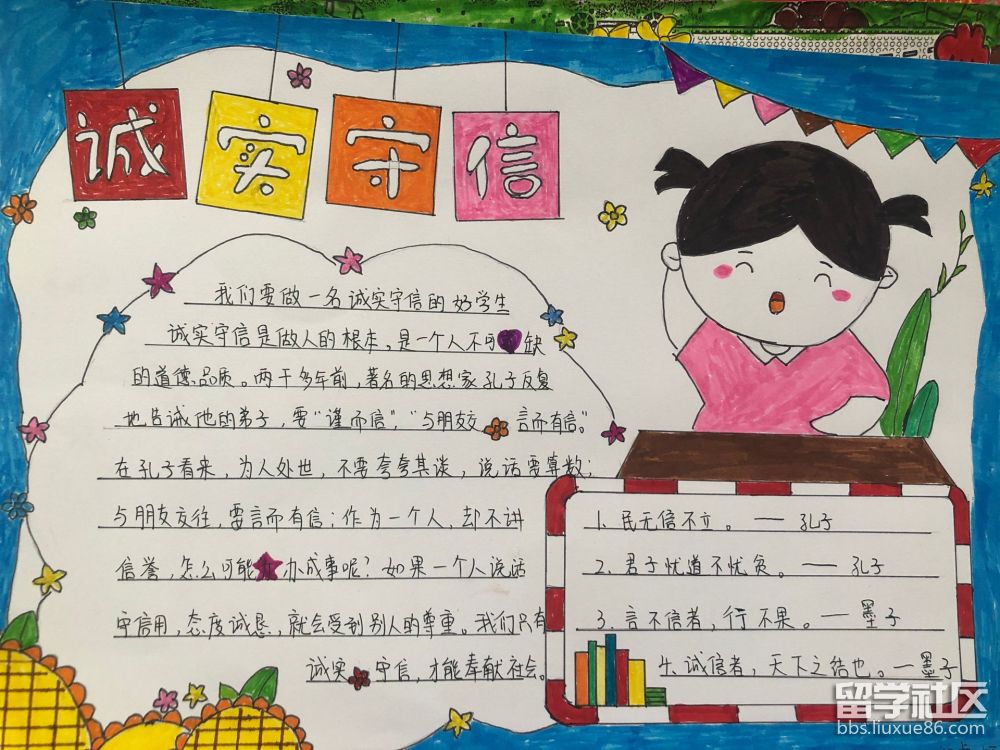 诚实守信
我们要做一名诚实守信的好学生
诚实守信是做人的根本,是一个人不可缺
的道德品质。两千多年前,著名的思想家孔子反复
地告诫他的弟子,要“谨而信”,“与朋友交言而有信”。
在孔子看来,为人处世,不要夸夸其谈,说话要算数;
与朋友交往,要言而有信;作为一个人,却不讲
信誉,怎么可能办成事呢?如果一个人说话
守信用,态度诚恳,就会受到别人的尊重。我们只有
诚实守信,才能奉献社会。
1.民无信不立。——孔子
2.君子忧道不忧贫。——孔子
3.言不信者,行不果。—墨子
4.诚信者,天下之结也。—墨子
留学社区
bbs.liuxue86.com